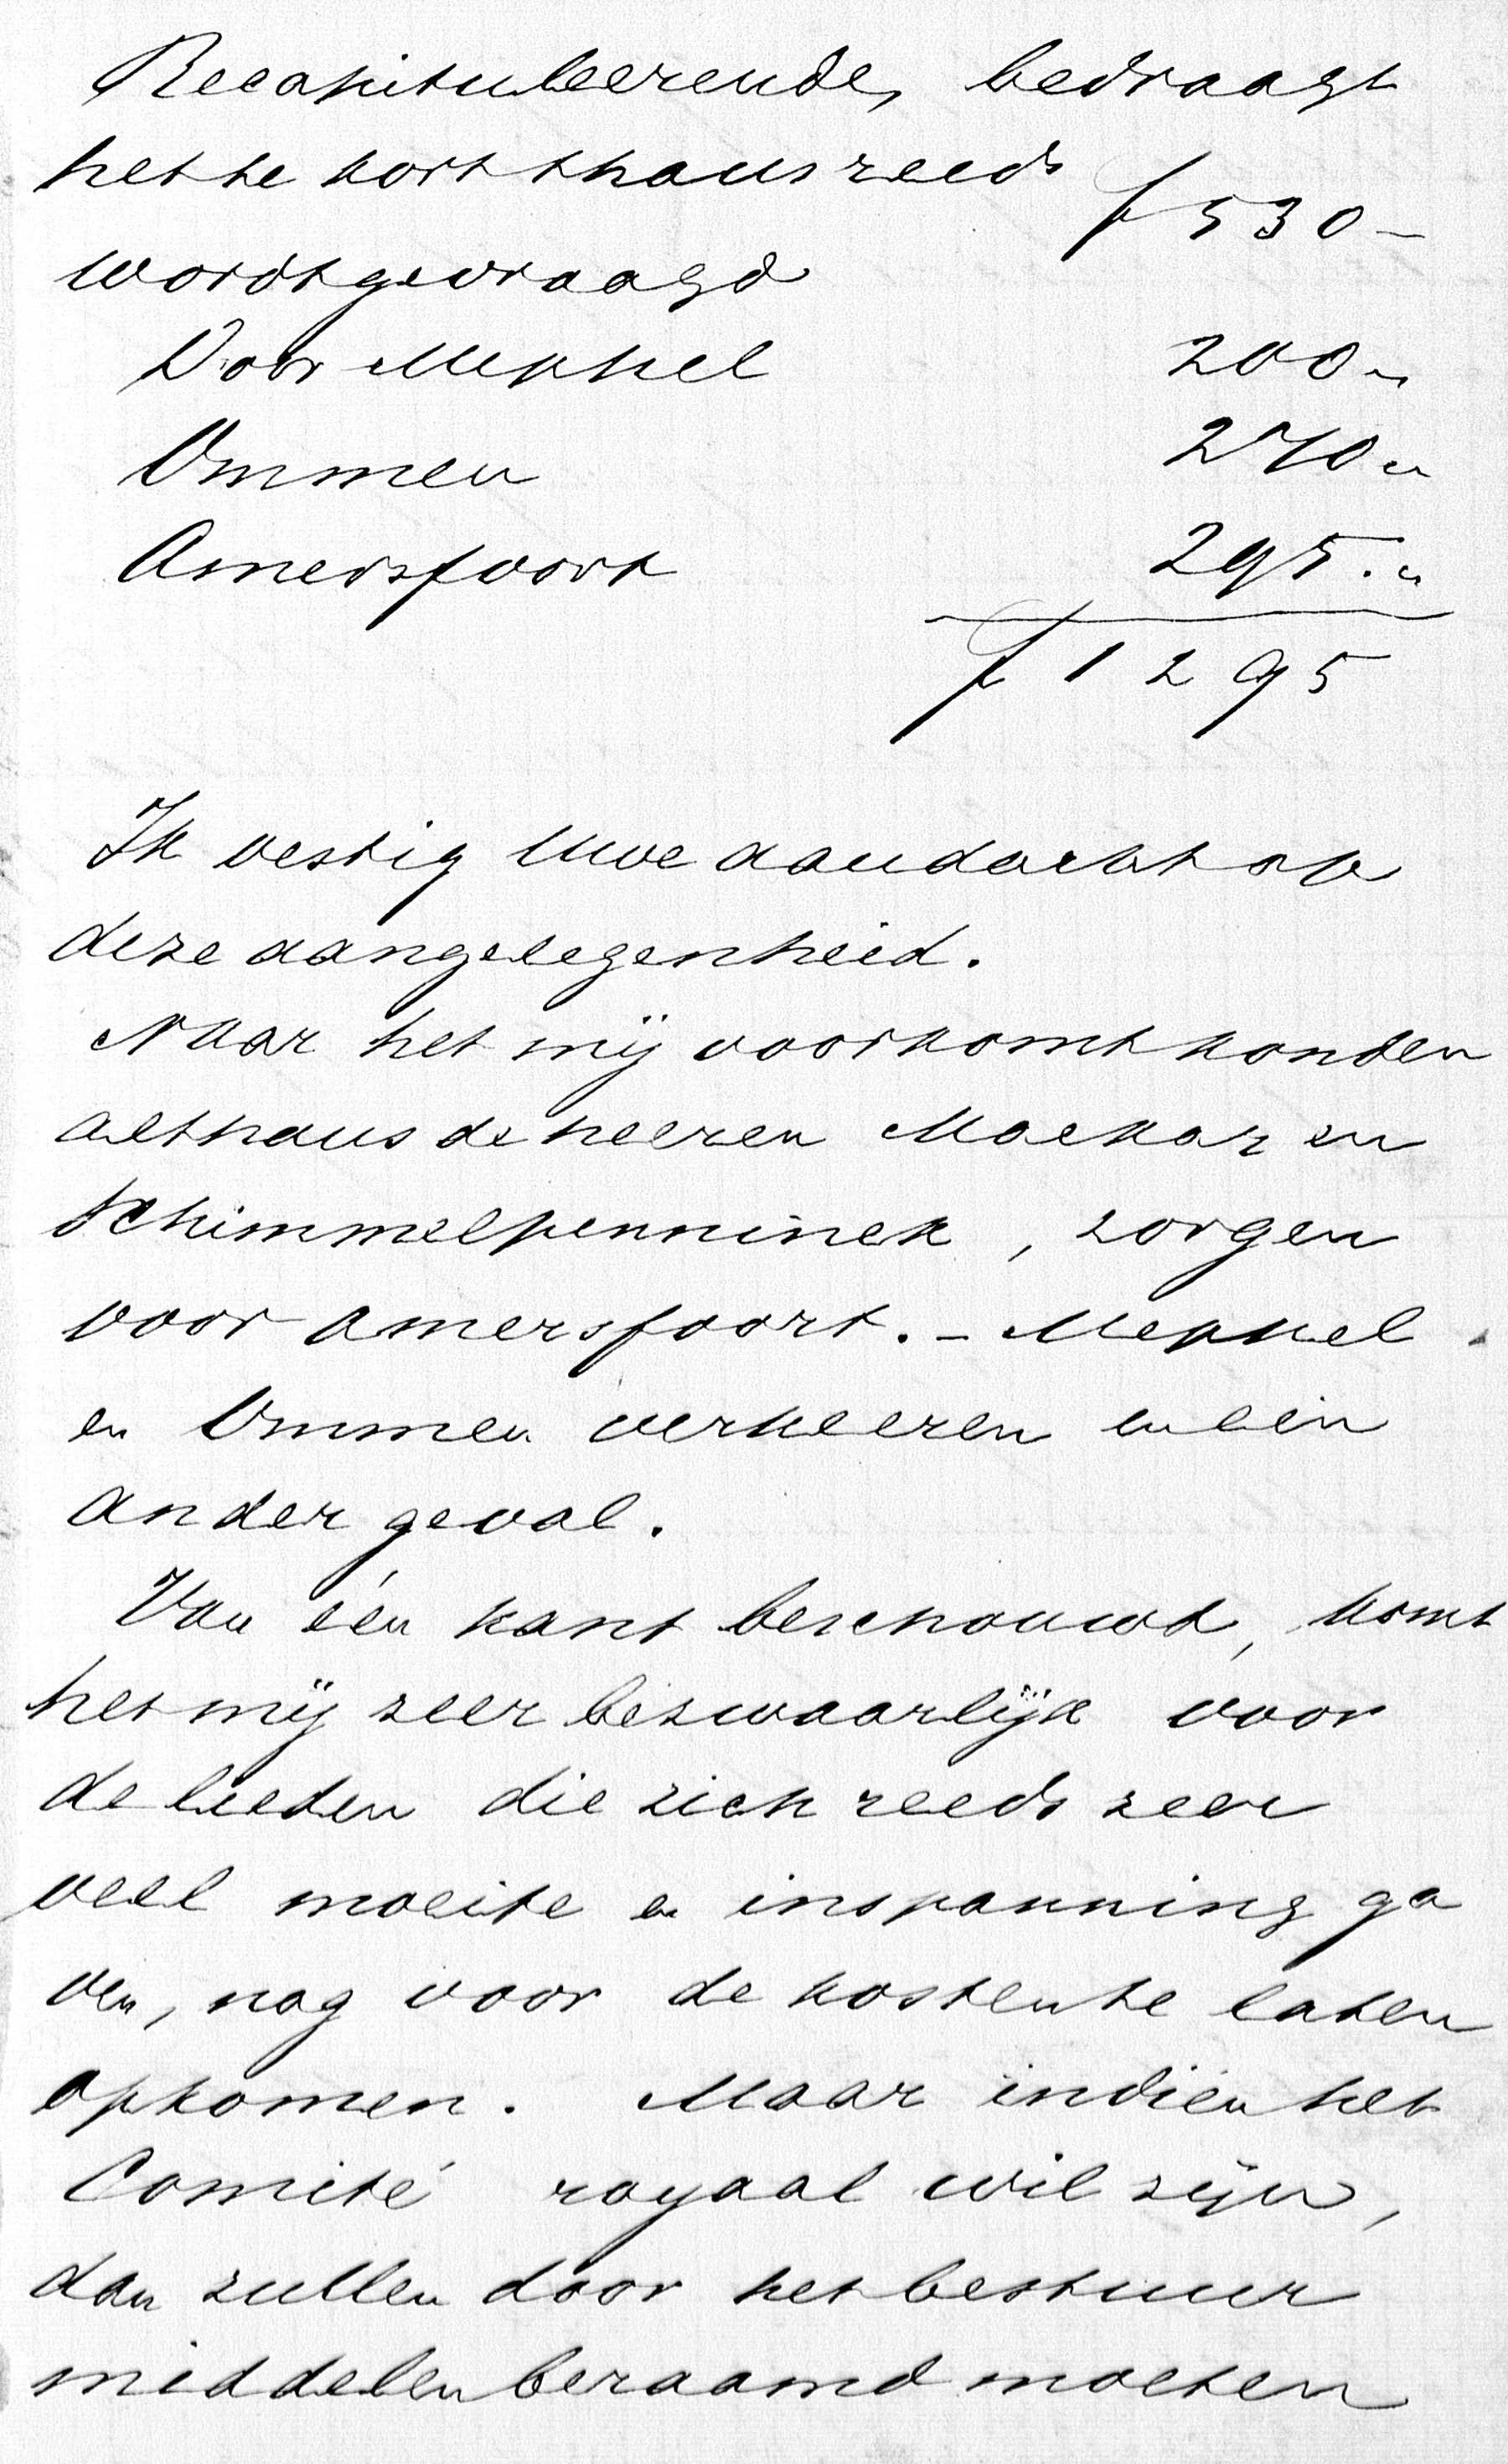 Recapituleerende, bedraagt
het te kort thans reeds
f 530 –
wordt gevraagd
Door Meppel 200 „
Ommen 270 „
Amersfoort 295 . „
f 1295
Ik vestig Uwe aandacht op
deze aangelegenheid.
Naar het mij voorkomt konden
althans de heeren en
Schimmelpenninck , zorgen
voor Amersfoort. – Meppel
en Ommen verkeeren in een
ander geval.
Van één kant beschouwd, komt
het mij zeer bezwaarlijk voor
de lieden die zich reeds zeer
veel moeite en inspanning ga
ven, nog voor de kosten te laten
opkomen. Maar indien het
Comité royaal wil zijn,
dan zullen door het bestuur
middelen beraamd moeten